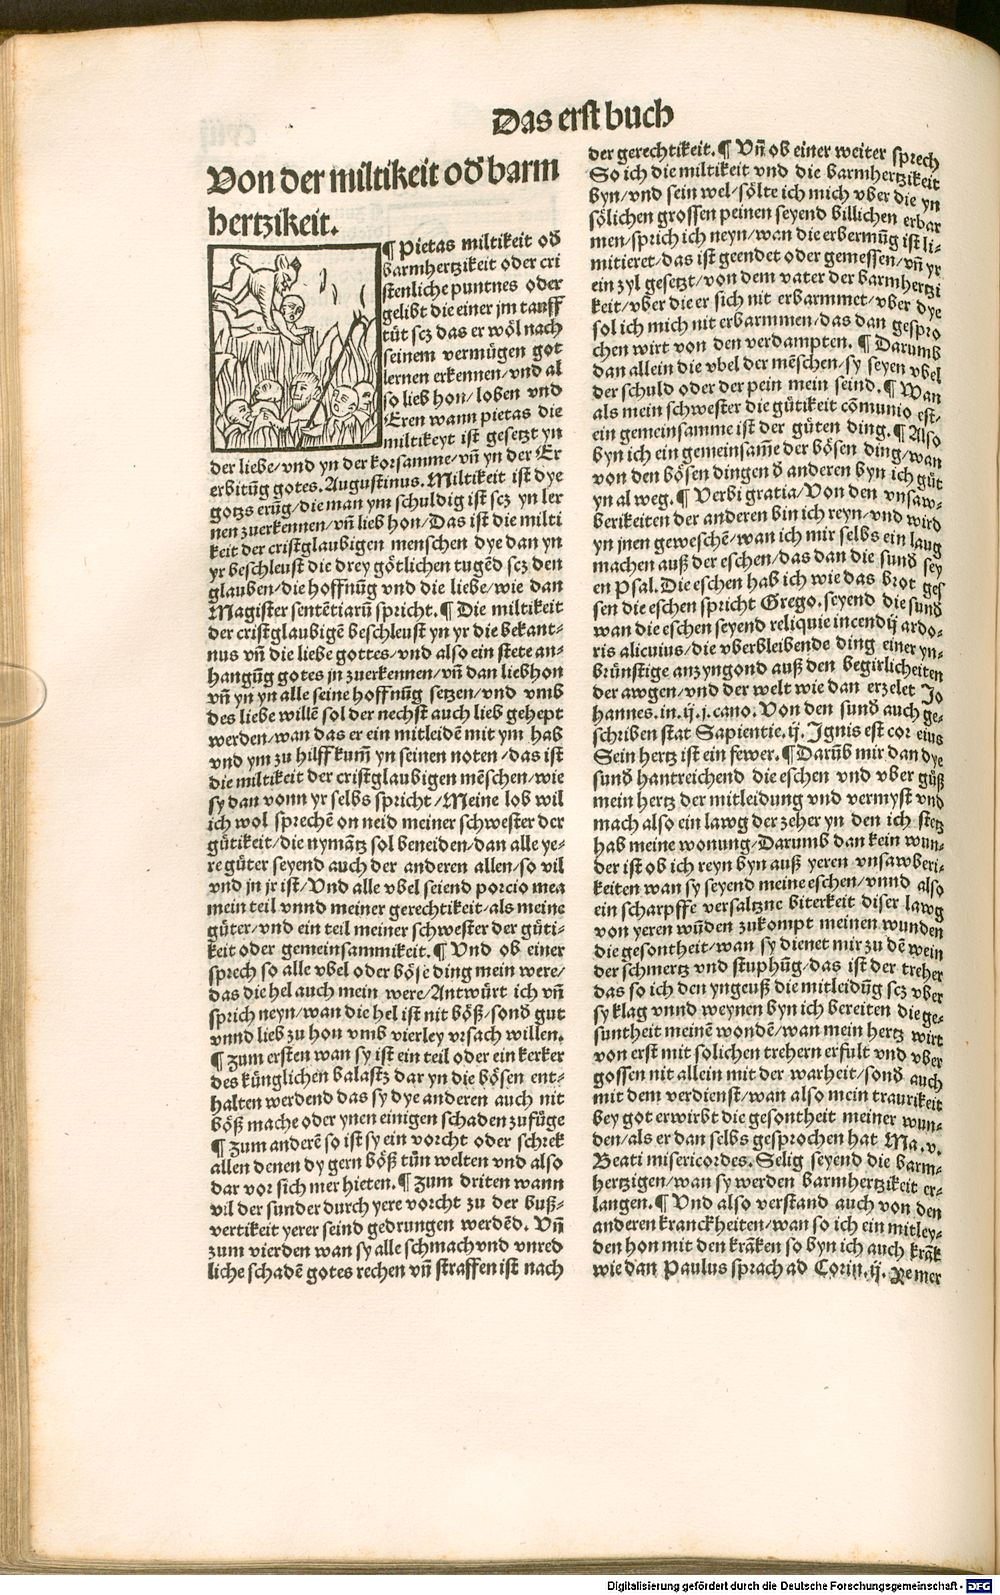 Das erst buch
Von der miltikeit od̕ barm
hertzikeit.
¶ Pietas miltikeit od̕
barmhertzikeit oder cri
stenliche puntnes oder
gelibt die einer jm tauff
tůt scz das er wöl nach
seinem vermügen got
lernen erkennen/vnd al
so lieb hon/loben vnd
Eren wann pietas die
miltikeyt ist gesetzt yn
der liebe/vnd yn der korsamme/vn̄ yn der Er
erbitūg gotes. Augustinus. Miltikeit ist dye
gotzs erūg/die man ym schuldig ist scz yn ler
nen zuerkennen/vn̄ lieb hon/Das ist die milti
keit der cristglaubigen menschen dye dan yn
yr beschleust die drey götlichen tugēd scz den
glauben/die hoffnūg vnd die liebe/wie dan
Magister sentētiarū spricht. ¶ Die miltikeit
der cristglaubigē beschleust yn yr die bekant⸗
nus vn̄ die liebe gottes/vnd also ein stete an⸗
hangūg gotes jn zuerkennen/vn̄ dan liebhon
vn̄ yn yn alle seine hoffnūg setzen/vnd vmb
des liebe willē sol der nechst auch lieb gehept
werden/wan das er ein mitleidē mit ym hab
vnd ym zu hilff kum̄ yn seinen noten/das ist
die miltikeit der cristglaubigen mēschen/wie
sy dan vonn yr selbs spricht/Meine lob wil
ich wol sprechē on neid meiner schwester der
gütikeit/die nymātz sol beneiden/dan alle ye⸗
re güter seyend auch der anderen allen/so vil
vnd jn jr ist/Vnd alle vbel seiend porcio mea
mein teil vnnd meiner gerechtikeit/als meine
güter/vnd ein teil meiner schwester der güti⸗
keit oder gemeinsammikeit. ¶ Vnd ob einer
sprech so alle vbel oder böse ding mein were/
das die hel auch mein were/Antwürt ich vn̄
sprich neyn/wan die hel ist nit böß/sond̕ gut
vnnd lieb zu hon vmb vierley vrsach willen.
¶ Zum ersten wan sy ist ein teil oder ein kerker
des künglichen balastz dar yn die bösen ent⸗
halten werdend das sy dye anderen auch nit
böß mache oder ynen einigen schaden zufüge
¶ Zum anderē so ist sy ein vorcht oder schrek
allen denen dy gern böß tün welten vnd also
dar vor sich mer hieten. ¶ Zum driten wann
vil der sunder durch yere vorcht zu der buß⸗
vertikeit yerer seind gedrungen werdēd. Vn̄
zum vierden wan sy alle schmach vnd vnred
liche schadē gotes rechen vn̄ straffen ist nach
der gerechtikeit. ¶ Vn̄ ob einer weiter sprech
So ich die miltikeit vnd die barmhertzikeit
byn/vnd sein wel/sölte ich mich vber die yn
sölichen grossen peinen seyend billichen erbar
men/sprich ich neyn/wan die erbermūg ist li⸗
mitieret/das ist geendet oder gemessen/vn̄ yr
ein zyl gesetzt/von dem vater der barmhertzi
keit/vber die er sich nit erbarmmet/vber dye
sol ich mich nit erbarmmen/das dan gespro
chen wirt von den verdampten. ¶ Darumb
dan allein die vbel der mēschen/sy seyen vbel
der schuld oder der pein mein seind. ¶ Wan
als mein schwester die gütikeit cōmunio est⸗
ein gemeinsamme ist der güten ding. ¶ Also
byn ich ein gemeinsam̄e der bösen ding/wan
von den bösen dingen d̕ anderen byn ich güt
yn al weg. ¶ Verbi gratia/Von den vnsaw⸗
berikeiten der anderen bin ich reyn/vnd wird
yn jnen geweschē/wan ich mir selbs ein laug
machen auß der eschen/das dan die sund sey
en Psal. Die eschen hab ich wie das brot ges
sen die eschen spricht Grego. seyend die sund
wan die eschen seyend reliquie incendij ardo⸗
ris alicuius/die vberbleibende ding einer yn⸗
brünstige anzyngond auß den begirlicheiten
der awgen/vnd der welt wie dan erzelet Jo
hannes. in. ij. j. cano. Von den sund̕ auch ge⸗
schriben stat Sapientie. ij. Ignis est cor eius
Sein hertz ist ein fewer. ¶ Darūb mir dan dye
sund̕ hantreichend die eschen vnd vber güß
mein hertz der mitleidung vnd vermyst vnd
mach also ein lawg der zeher yn den ich stetz
hab meine wonung/Darumb dan kein wun⸗
der ist ob ich reyn byn auß yeren vnsawberi⸗
keiten wan sy seyend meine eschen/vnnd also
ein scharpffe versaltzne biterkeit diser lawg
von yeren wūden zukompt meinen wunden
die gesontheit/wan sy dienet mir zu dē wein
der schmertz vnd stuphūg/das ist der treher
das so ich den yngeuß die mitleidūg scz vber
sy klag vnnd weynen byn ich bereiten die ge⸗
suntheit meinē wondē/wan mein hertz wirt
von erst mit solichen trehern erfult vnd vber
gossen nit allein mit der warheit/sond̕ auch
mit dem verdienst/wan also mein traurikeit
bey got erwirbt die gesontheit meiner wun⸗
den/als er dan selbs gesprochen hat Ma. v.
Beati misericordes. Selig seyend die barm⸗
hertzigen/wan sy werden barmhertzikeit er⸗
langen. ¶ Vnd also verstand auch von den
anderen kranckheiten/wan so ich ein mitley⸗
den hon mit den krāken so byn ich auch krāk
wie dan Paulus sprach ad Corin. ij. Re mer
Digitalisierung gefördert durch die Deutsche Forschungsgemeinschaft - DFG